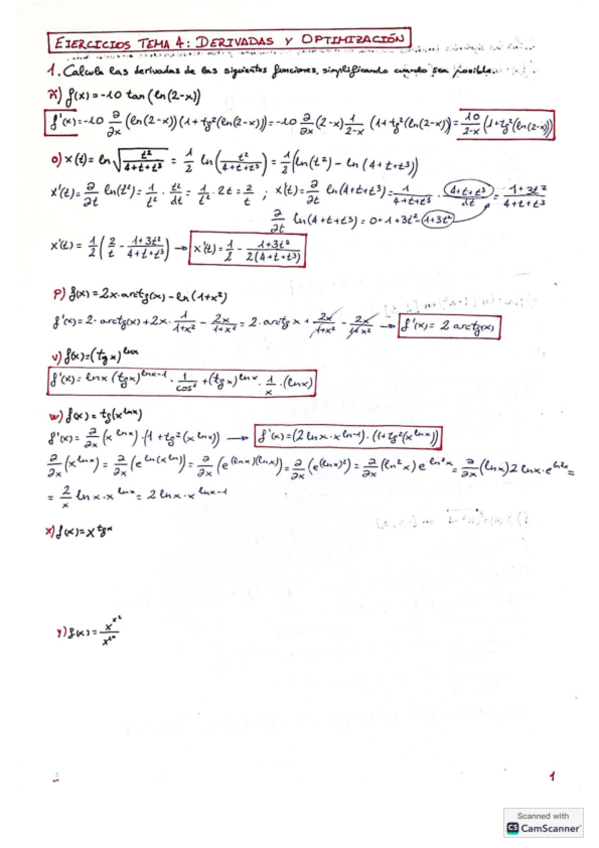 EJERCICIOS TEMA 4: DERIVADAS Y OPTIMIZACIÓN
1. Calcula las derivadas de las siguientes funciones, simplificando cuando sea posible.
f(x)=-10 tan(ln(2-x))
f'(x)=-10 ∂/∂x (ln(2-x))(1+tg²(ln(2-x)))=-10 ∂/∂x (2-x) 1/(2-x) (1+tg²(ln(2-x)))= 10/(2-x) (1+tg²(ln(2-x)))
o) x(t)= ln √(t²/(4+t+t³)) = 1/2 ln(t²/(4+t+t³)) = 1/2 (ln(t²) - ln(4+t+t³))
x'(t)= ∂/∂t ln(t²)= 1/t² · t²/dt = 1/t² · 2t = 2/t ; x'(t)= ∂/∂t ln(4+t+t³)= 1/(4+t+t³) · (4+t+t³)/dt = (1+3t²)/(4+t+t³)
∂/∂t ln(4+t+t³)= 0+1+3t² (1+3t²)
x'(t)= 1/2 (2/t - (1+3t²)/(4+t+t³)) → x'(t)= 1/2 - (1+3t²)/(2(4+t+t³))
p) f(x)=2x·arctg(x)-ln(1+x²)
f'(x)=2·arctg(x)+2x· 1/(1+x²) - 2x/(1+x²) = 2·arctg x + 2x/(1+x²) - 2x/(1+x²) → f'(x)= 2 arctg(x)
v) f(x)=(tg x)^(lnx)
f'(x)= lnx (tgx)^(lnx-1) · 1/cos² + (tgx)^(lnx) · 1/x · (lnx)
w) f(x)=tg(x^(lnx))
f'(x)= ∂/∂x (x^(lnx))·(1+tg²(x^(lnx))) → f'(x)=(2 lnx·x^(lnx-1))·(1+tg²(x^(lnx)))
∂/∂x (x^(lnx))= ∂/∂x (e^(ln(x^(lnx))))= ∂/∂x (e^((lnx)(lnx)))= ∂/∂x (e^((lnx)²))= ∂/∂x (ln²x) e^(ln²x)= ∂/∂x (lnx) 2 lnx·e^(ln²x)=
= 2/x lnx·x^(lnx)= 2 lnx·x^(lnx-1)
x) f(x)=x^(tgx)
1
Scanned with
CS CamScanner